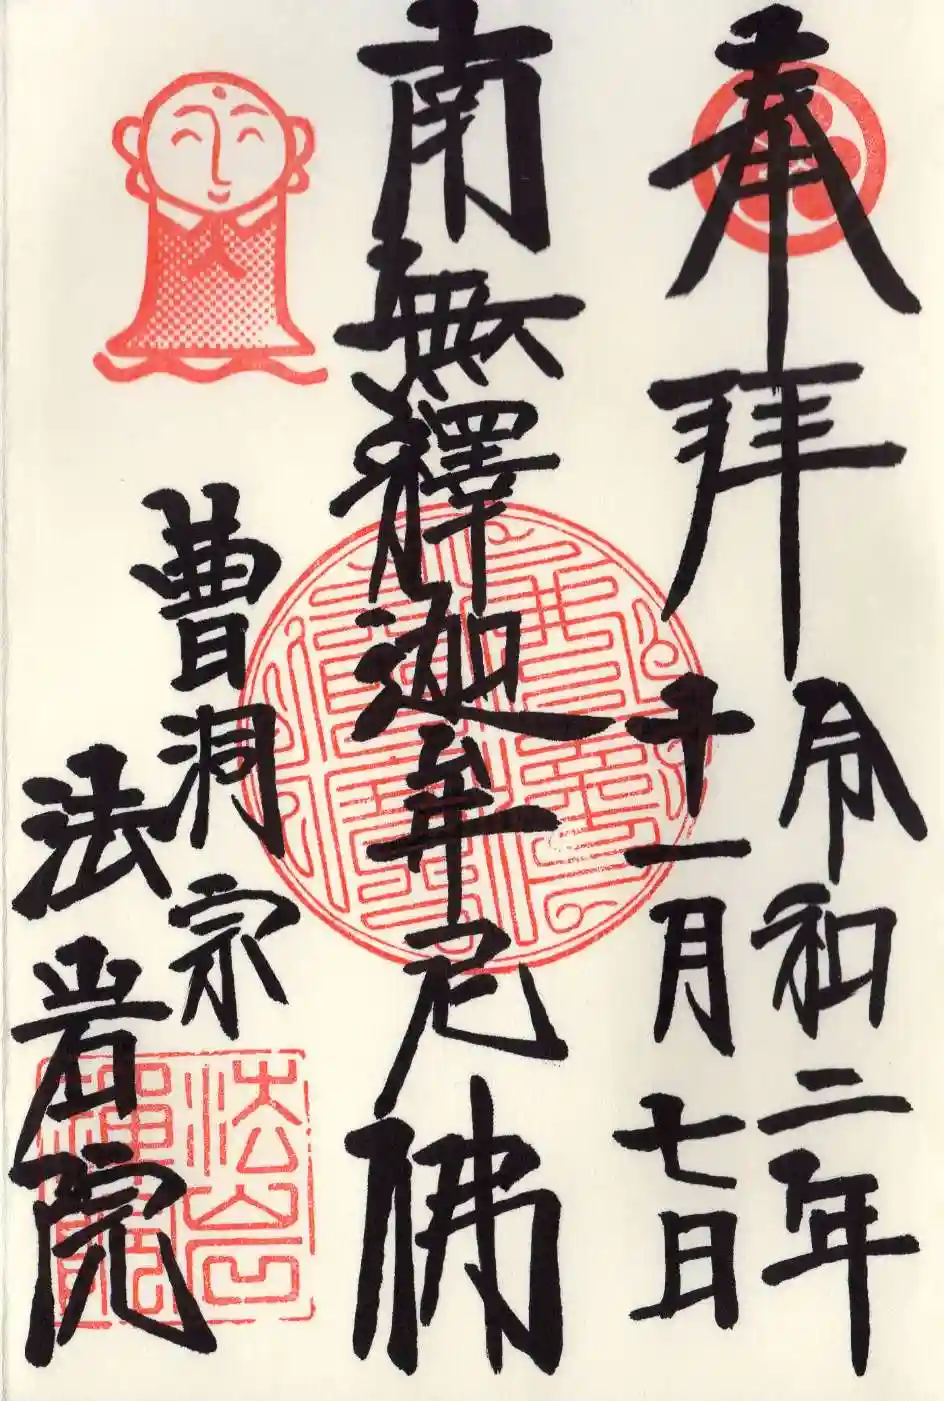 奉拝
令和二年
十一月七日
南無釋迦牟尼佛
曹洞宗
法岩院